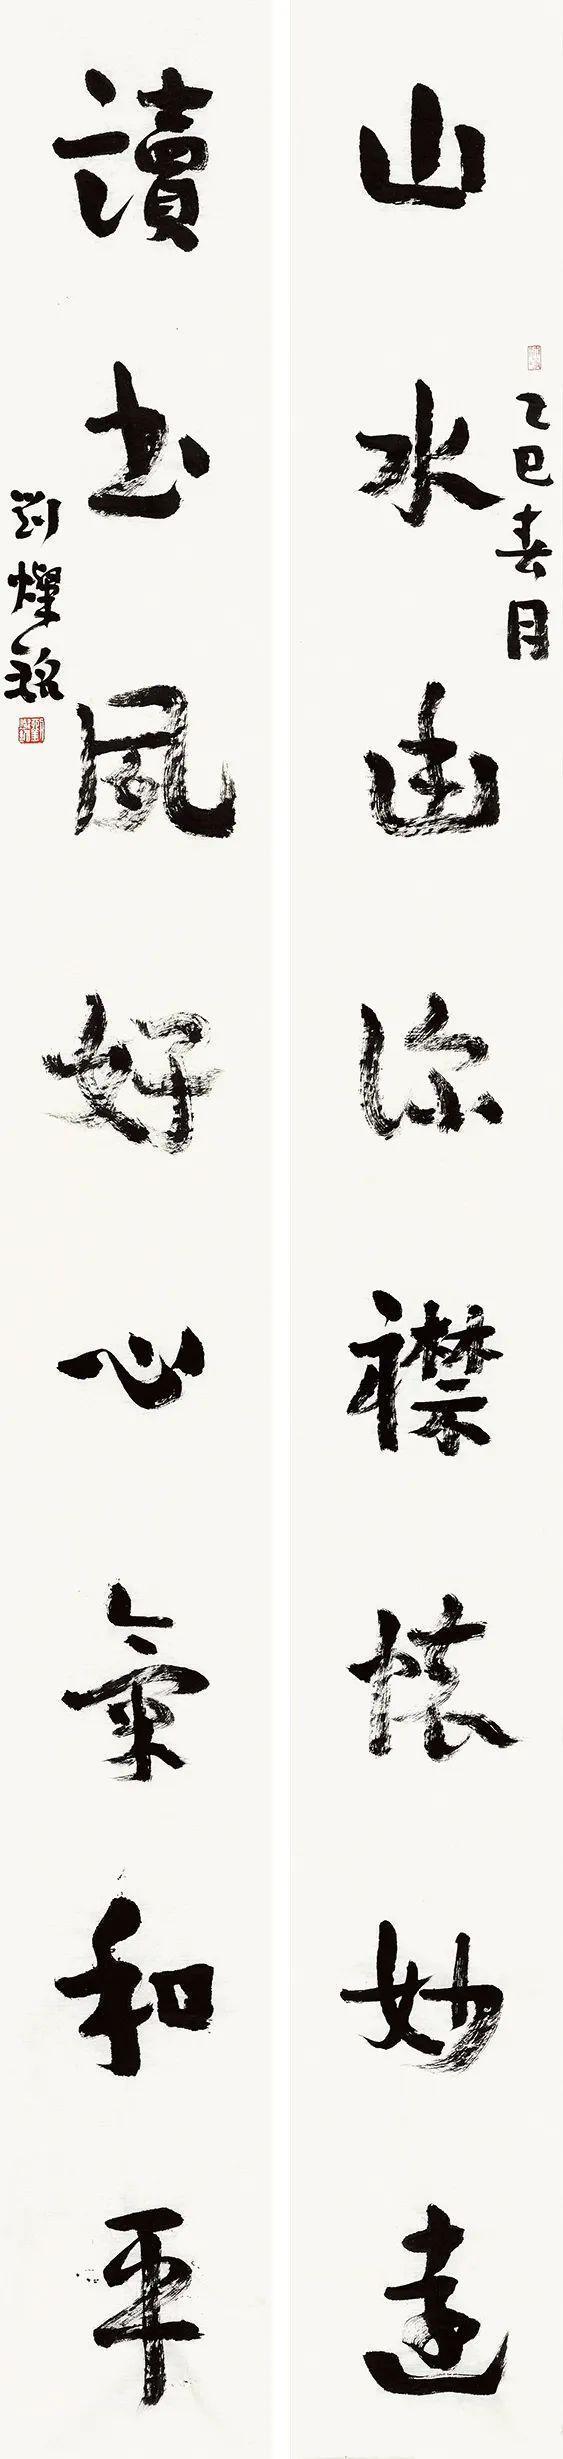 山水幽深襟懷妙遠
乙巳春月
讀書風好心氣和平
劉燦銘